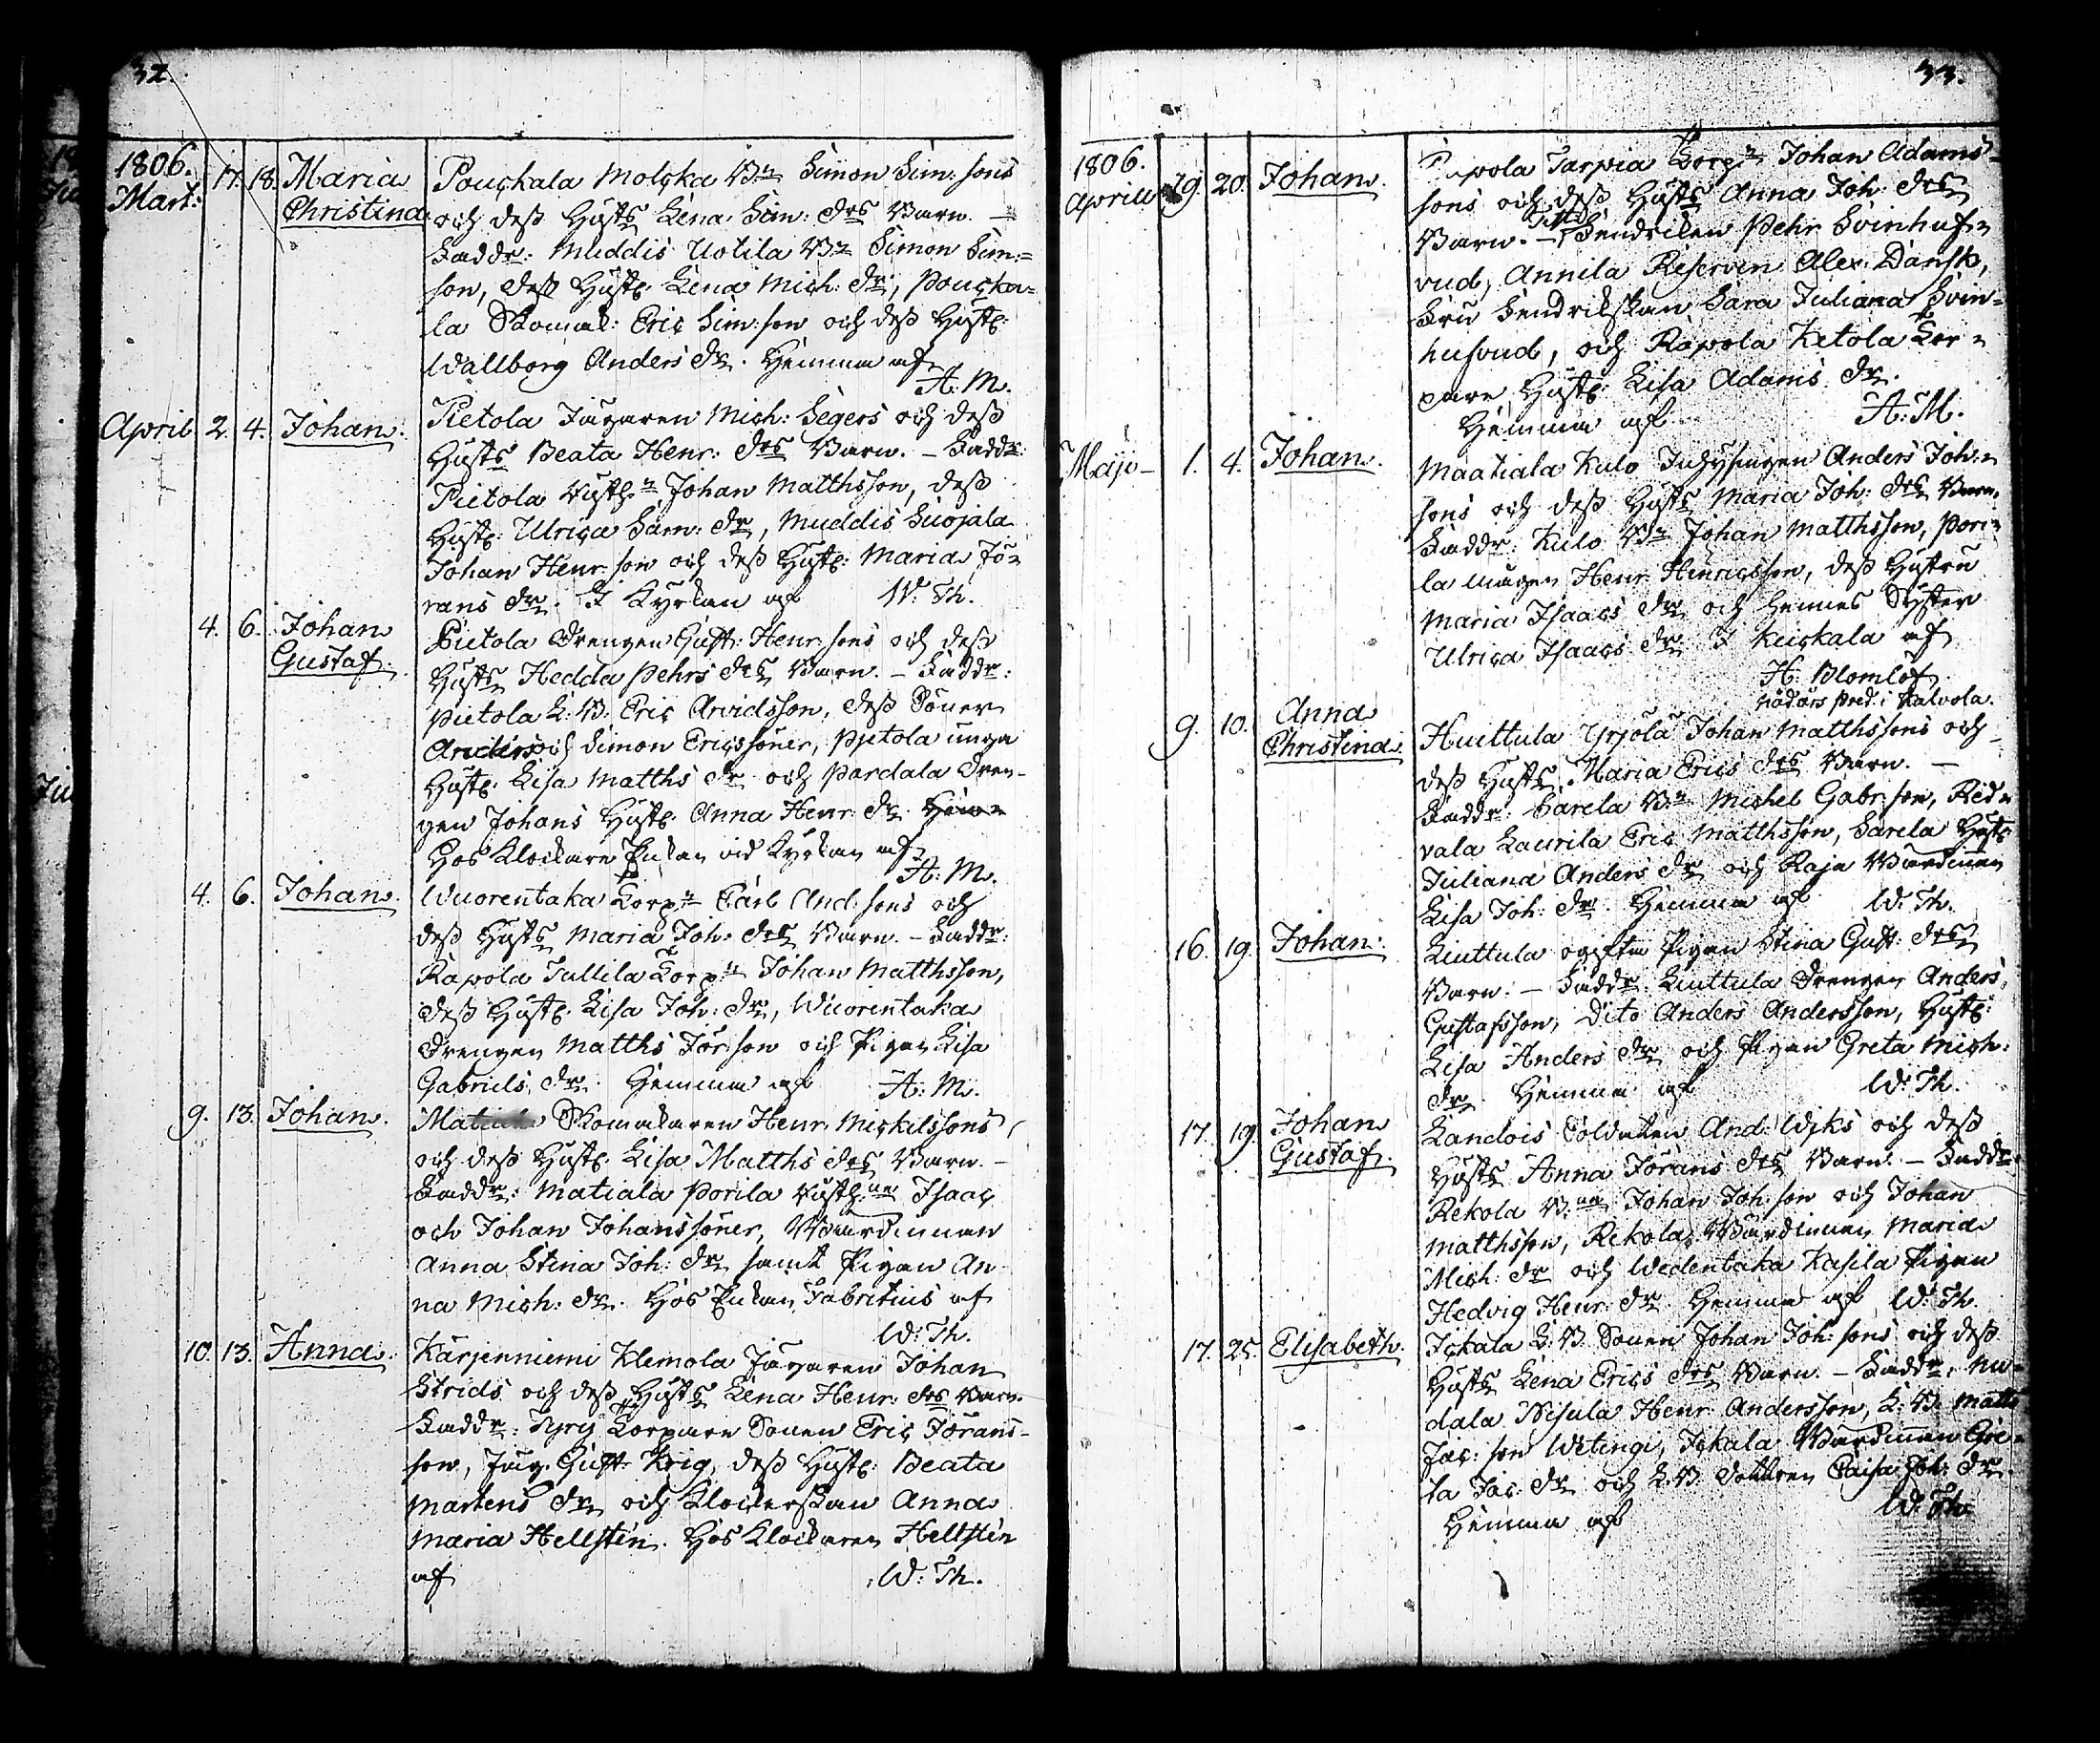 32.
1806. Mart: 17. 18. Maria Christina
Pouckala Molcka B:n Simon Sim: sons
och dess Hustrs Lena Sim: drs Barn. —
Faddr: Muddis Uotila B:n Simon Sim:=
son, dess Hustr: Lena Mich: dr, Poucka=
la Skomak: Eric Sim: son och dess Hustr:
Wallborg Anders dr. Hemma af
A: M.
April 2. 4. Johan.
Pietola Jägaren Mich: Segers och dess
Hustrs Beata Henr: drs Barn. — Faddr:
Pietola Rusth:n Johan Matthsson, dess
Hustr: Ulrica Sam: dr, Muddis Suojala
Johan Henr: son och dess Hustr: Maria Jö=
rans dr. I Kyrkan af W: Th.
4. 6. Johan Gustaf.
Pietola Drengen Gust: Henr: sons och dess
Hustrs Hedda Pehrs drs Barn. — Faddr:
Pietola L: B: Eric Arvidsson, dess Söner
Anders och Simon Ericssöner, Pietola unga
Hustr: Lisa Matths dr och Pardala Dren-
gen Johans Hustr: Anna Henr: dr
Hos Klockare Enkan vid Kyrkan af
A: M.
4. 6. Johan.
Wuorentaka Torp:n Carl And: sons och
dess Hustrs Maria Joh: drs Barn. — Faddr:
Rapola Jullila Torp:n Johan Matthsson,
dess Hustr: Lisa Joh: dr, Wuorentaka
Drengen Matths Jör: son och Pigan Lisa
Gabriels dr. Hemma af A: M.
9. 13. Johan.
Skomakaren Henr: Mickilssons
och dess Hustr: Lisa Matths drs Barn. —
Faddr: Matiala Porila Rusth:ne Isaac
och Johan Johanssöner, Wärdinnan
Anna Stina Joh: dr samt Pigan An
na Mich: dr. Hos Enkan Fabritius af
W: Th.
10. 13. Anna.
Karjenniemi Klemola Jägaren Johan
Strids och dess Hustrs Lena Henr: drs Barn.
Faddr: Tyry Torpare Sonen Eric Jörans-
son, Jäg. Gust: Krig, dess Hustr: Beata
Martens dr och Klockerskan Anna
Maria Hellstén. Hos Klockaren Hellstén
af W: Th.
33.
1806. Aprill 19. 20. Johan.
Tarpia Torp:n Johan Adams-
sons och dess Hustrs Anna Joh: drs
Barn. — Fendriken Pehr Svinhuf=
vud, Annila Reserven Alex: Dansk,
Fru Fendrikskan Sara Juliana Svin=
hufvud, och Rapola Ketola Tor=
pare Hustr: Lisa Adams dr.
Hemma af A: M.
Majo — 1. 4. Johan.
Maatiala Kulo Inhysingen Anders Joh:=
sons och dess Hustrs Maria Joh: drs Barn.
Faddr: Kulo B:n Johan Matthsson, Pori=
la mågen Henr: Henricsson, dess Hustru
Maria Isaacs dr och hennes Syster
Ulrica Isaacs dr I Kuckala af
H: Blomlöf
nödårs pred. i Kalvola.
9. 10. Anna Christina.
Huittula Yrjölä Johan Matthssons och
dess Hustrs Maria Erics drs Barn. —
Faddr: Carela B:n Michel Gabr: son, Red=
vala Laurila Eric Matthsson, Carela Hustr
Juliana Anders dr och Raja Wärdinnan
Lisa Joh: dr. Hemma af W: Th.
16. 19. Johan.
Liuttula ogifta Pigan Stina Gust: drs
Barn. — Faddr: Liuttula Drengen Anders
Gustafsson, Dito Anders Andersson, Hustr:
Lisa Anders dr och Pigan Greta Mich:
dr. Hemma af W: Th.
17. 19. Johan Gustaf.
Landois Soldaten And: Wiks och dess
Hustrs Anna Jörans drs Barn. — Faddr:
Rekola B:ne Johan Joh: son och Johan
Matthsson, Rekola Wärdinnan Maria
Mich: dr och Wedentaka Kasila Pigan
Hedvig Henr: dr Hemma af W: Th.
17. 25. Elisabeth.
Jckala L: B. Sonen Johan Joh: sons och dess
Hustrs Lena Erics drs Barn. — Faddr: Nu=
dala Nisula Henr: Andersson, L: B. Matts
Jac: son Wetingi, Jckala Wärdinnan Gre=
ta Jac: dr och L: B. Dottren Caisa Joh: dr.
Hemma af W: Th.